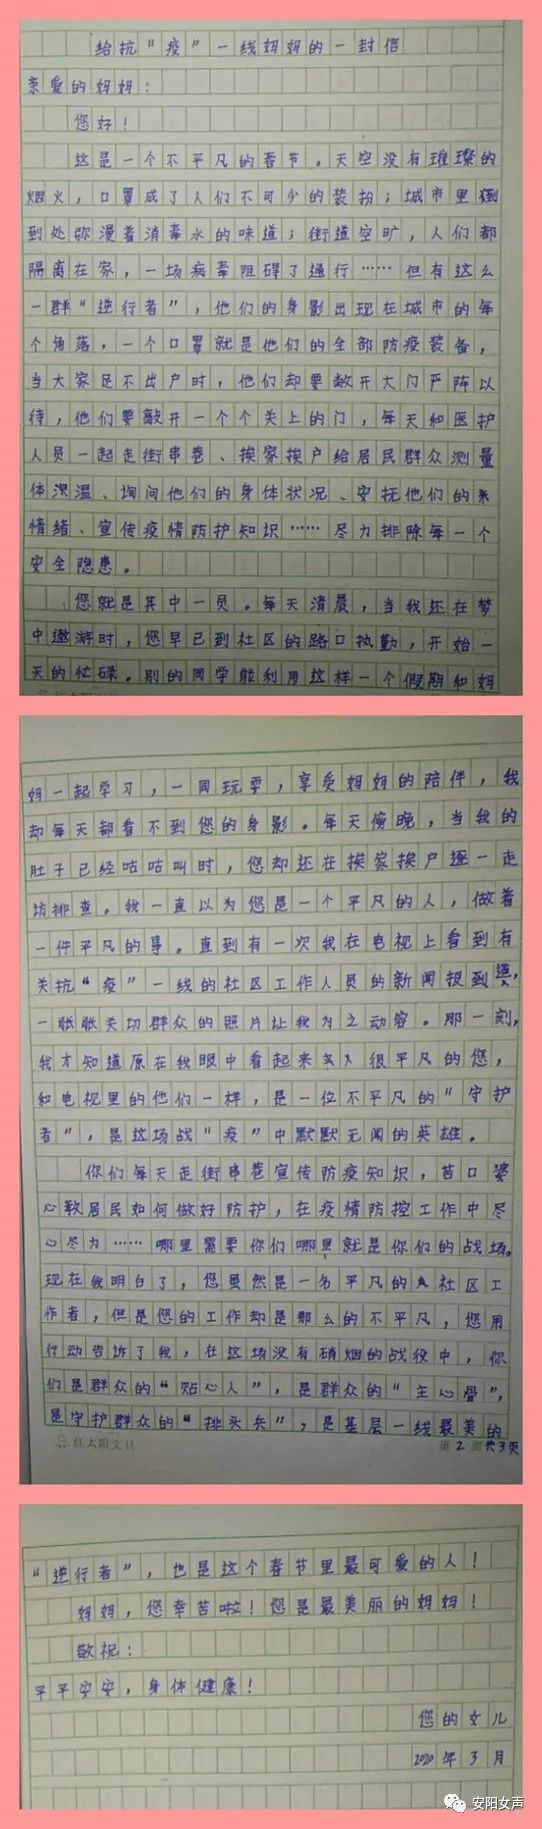 给抗“疫”一线妈妈的一封信
亲爱的妈妈：
您好！
这是一个不平凡的春节。天空没有璀璨的
烟火，口罩成了人们不可少的装扮；城市里
到处弥漫着消毒水的味道；街道空旷，人们都
隔离在家，一场病毒阻碍了通行……但有这么
一群“逆行者”，他们的身影出现在城市的每
个角落，一个口罩就是他们的全部防疫装备，
当大家足不出户时，他们却要敞开大门严阵以
待，他们要敲开一个个关上的门，每天和医护
人员一起走街串巷、挨家挨户给居民群众测量
体温、询问他们的身体状况、安抚他们的
情绪、宣传疫情防护知识……尽力排除每一个
安全隐患。
您就是其中一员。每天清晨，当我还在梦
中遨游时，您早已到社区的路口执勤，开始一
天的忙碌。别的同学能利用这样一个假期和妈
妈一起学习，一同玩耍，享受妈妈的陪伴，我
却每天都看不到您的身影。每天傍晚，当我的
肚子已经咕咕叫时，您却还在挨家挨户逐一走
访排查。我一直以为您是一个平凡的人，做着
一件平凡的事。直到有一次我在电视上看到有
关抗“疫”一线的社区工作人员的新闻报到道，
一张张关切群众的照片让我为之动容。那一刻，
我才知道原在我眼中看起来很平凡的您，
和电视里的他们一样，是一位不平凡的“守护
者”，是这场战“疫”中默默无闻的英雄。
你们每天走街串巷宣传防疫知识，苦口婆
心教居民如何做好防护，在疫情防控工作中尽
心尽力……哪里需要你们哪里就是你们的战场。
现在我明白了，您虽然是一名平凡的社区工
作者，但是您的工作却是那么的不平凡，您用
行动告诉了我，在这场没有硝烟的战役中，你
们是群众的“贴心人”，是群众的“主心骨”，
是守护群众的“排头兵”，是基层一线最美的
红太阳文具 第2页共3页
“逆行者”，也是这个春节里最可爱的人！
妈妈，您幸苦啦！您是最美丽的妈妈！
敬祝：
平平安安，身体健康！
您的女儿
2020年3月
安阳女声